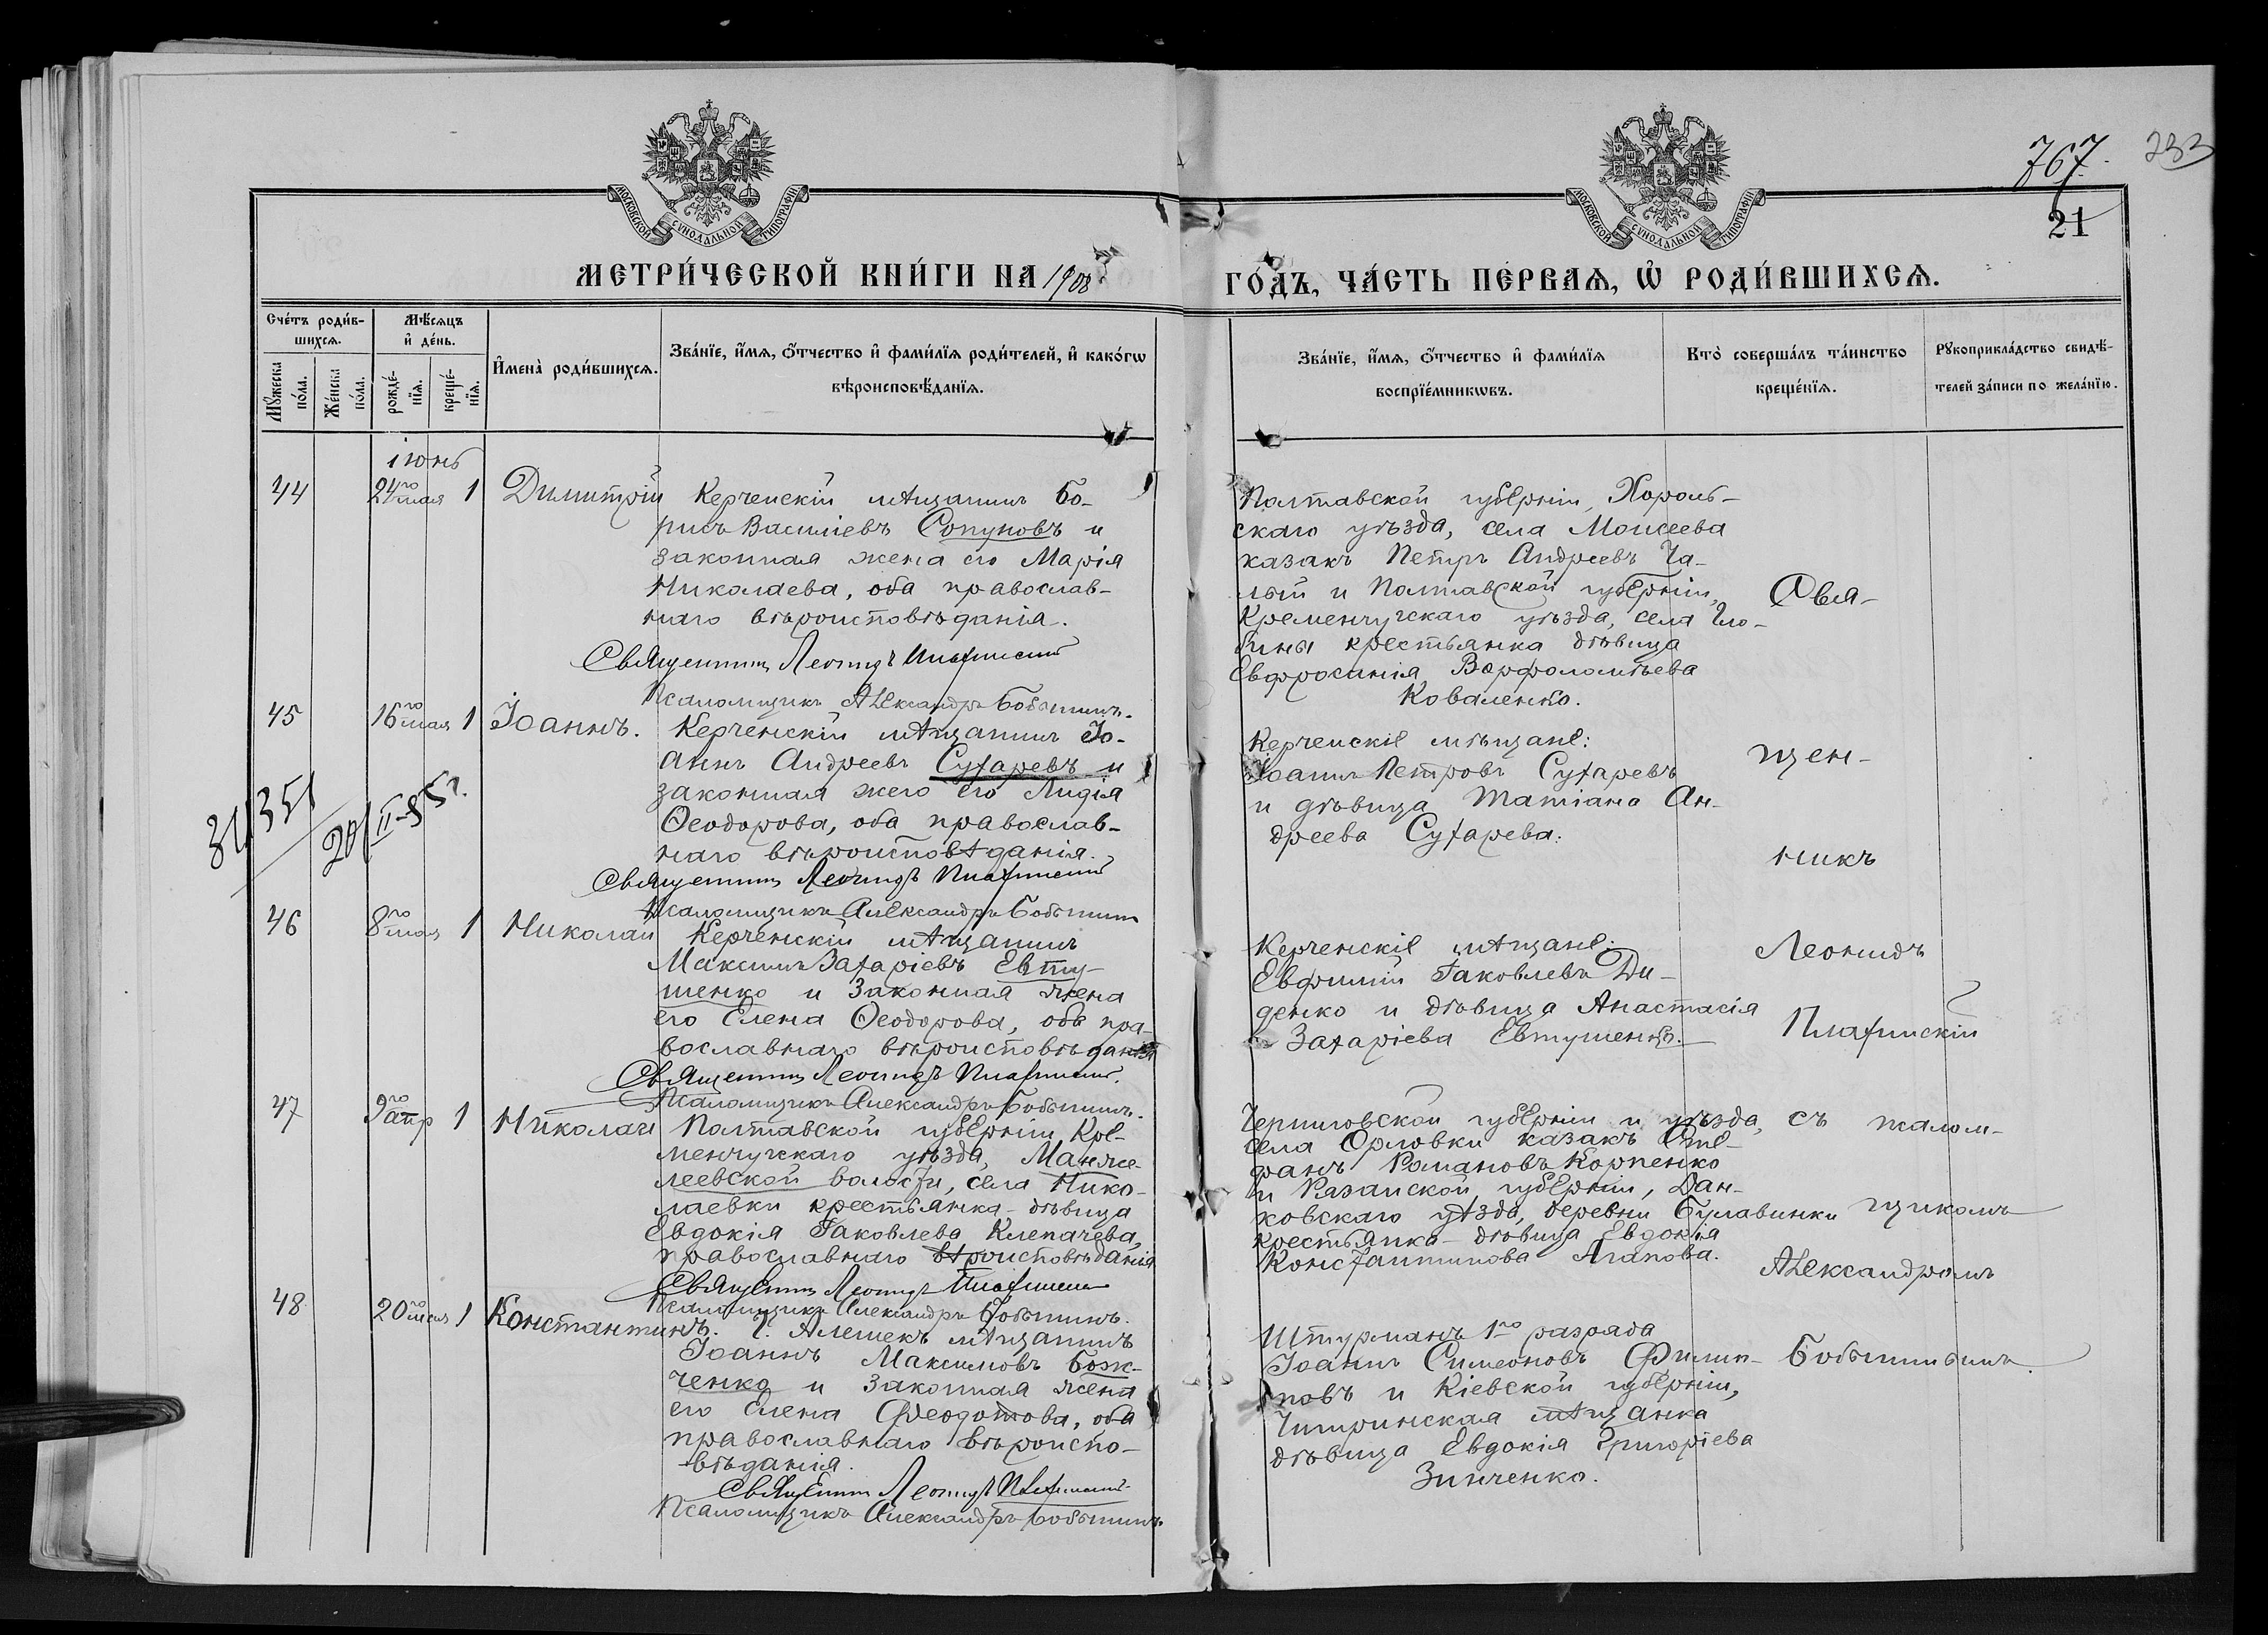 767.
233
21
МОСКОВСКОЙ СѴНОДАЛЬНОЙ ТИПОГРАФІИ
МОСКОВСКОЙ СѴНОДАЛЬНОЙ ТИПОГРАФІИ
МЕТРИ́ЧЕСКОЙ КНИ́ГИ НА 1908
ГО́ДЪ, ЧА́СТЬ ПЕ́РВАѦ, Ѡ҆ РОДИ́ВШИХСѦ.
Сче́тъ роди́в-
шихсѧ.
Мꙋ́жеска по́ла.
Же́нска по́ла.
Мѣ́сѧцъ
и҆ де́нь.
рожде́-
нїѧ.
креще́-
нїѧ.
И҆мена̀ роди́вшихсѧ.
Зва́нїе, и҆́мѧ, ѻ҆́тчество и҆ фами́лїѧ роди́телей, и҆ како́гѡ
вѣроисповѣ́данїѧ.
Зва́нїе, и҆́мѧ, ѻ҆́тчество и҆ фами́лїѧ
воспрїе́мникѡвъ.
Кто̀ соверша́лъ та́инство
креще́нїѧ.
Рꙋкоприкла́дство свидѣ́-
телей за́писи по жела́нїю.
Іюнь
44 24го мая 1 Димитрій Керченскій мѣщанинъ Бо-
рисъ Васильевъ Сопуновъ и
законная жена его Марія
Николаева, оба православ-
наго вѣроисповѣданія.
Священникъ Леонидъ Плахинскій
Псаломщикъ Александръ Бобышинъ.
Полтавской губерніи, Хороль-
скаго уѣзда, села Моисеева
казакъ Петръ Андреевъ Ча-
лый и Полтавской губерніи,
Кременчугскаго уѣзда, села Гло-
бины крестьянка дѣвица
Евфросинія Варфоломѣева
Коваленко.
Свя-
45 16го мая 1 Іоаннъ. Керченскій мѣщанинъ Іо-
аннъ Андреевъ Сухаревъ и
законная жего его Лидія
Ѳеодорова, оба православ-
наго вѣроисповѣданія.
Священникъ Леонидъ Плахинскій
Псаломщикъ Александръ Бобышинъ
20/II-55г.
Керченскіе мѣщане:
Іоаннъ Петровъ Сухаревъ
и дѣвица Татіана Ан-
дреева Сухарева.
щен-
никъ
46 8го мая 1 Николай Керченскій мѣщанинъ
Максимъ Захаріевъ Евту-
шенко и законная жена
его Елена Ѳеодорова, оба пра-
вославнаго вѣроисповѣданія
Священникъ Леонидъ Плахинскій.
Псаломщикъ Александръ Бобышинъ.
Керченскіе мѣщане:
Евфимій Іаковлевъ Ди-
денко и дѣвица Анастасія
Захаріева Евтушенко.
Леонидъ
Плахинскій
47 9го апр 1 Николай Полтавской губерніи, Кре-
менчугскаго уѣзда, Манже-
леевской волости, села Нико-
лаевки крестьянка-дѣвица
Евдокія Іаковлева Клепачева,
православнаго вѣроисповѣданія
Священникъ Леонидъ Плахинскій
Псаломщикъ Александръ Бобышинъ.
Черниговской губерніи и уѣзда,
села Орловки казакъ Сте-
фанъ Романовъ Корпенко
и Рязанской губерніи, Дан-
ковскаго уѣзда, деревни Булавинки
крестьянка-дѣвица Евдокія
Константинова Агапова.
съ псалом-
щикомъ
Александромъ
48 20го мая 1 Константинъ. Г. Алешекъ мѣщанинъ
Іоаннъ Максимовъ Бож-
ченко и законная жена
его Елена Феодотова, оба
православнаго вѣроиспо-
вѣданія.
Священникъ Леонидъ Плахинскій
Псаломщикъ Александръ Бобышинъ.
Штурманъ 1го разряда
Іоаннъ Симеоновъ Филип-
повъ и Кіевской губерніи,
Чигиринская мѣщанка
дѣвица Евдокія Григоріева
Зинченко.
Бобышинымъ